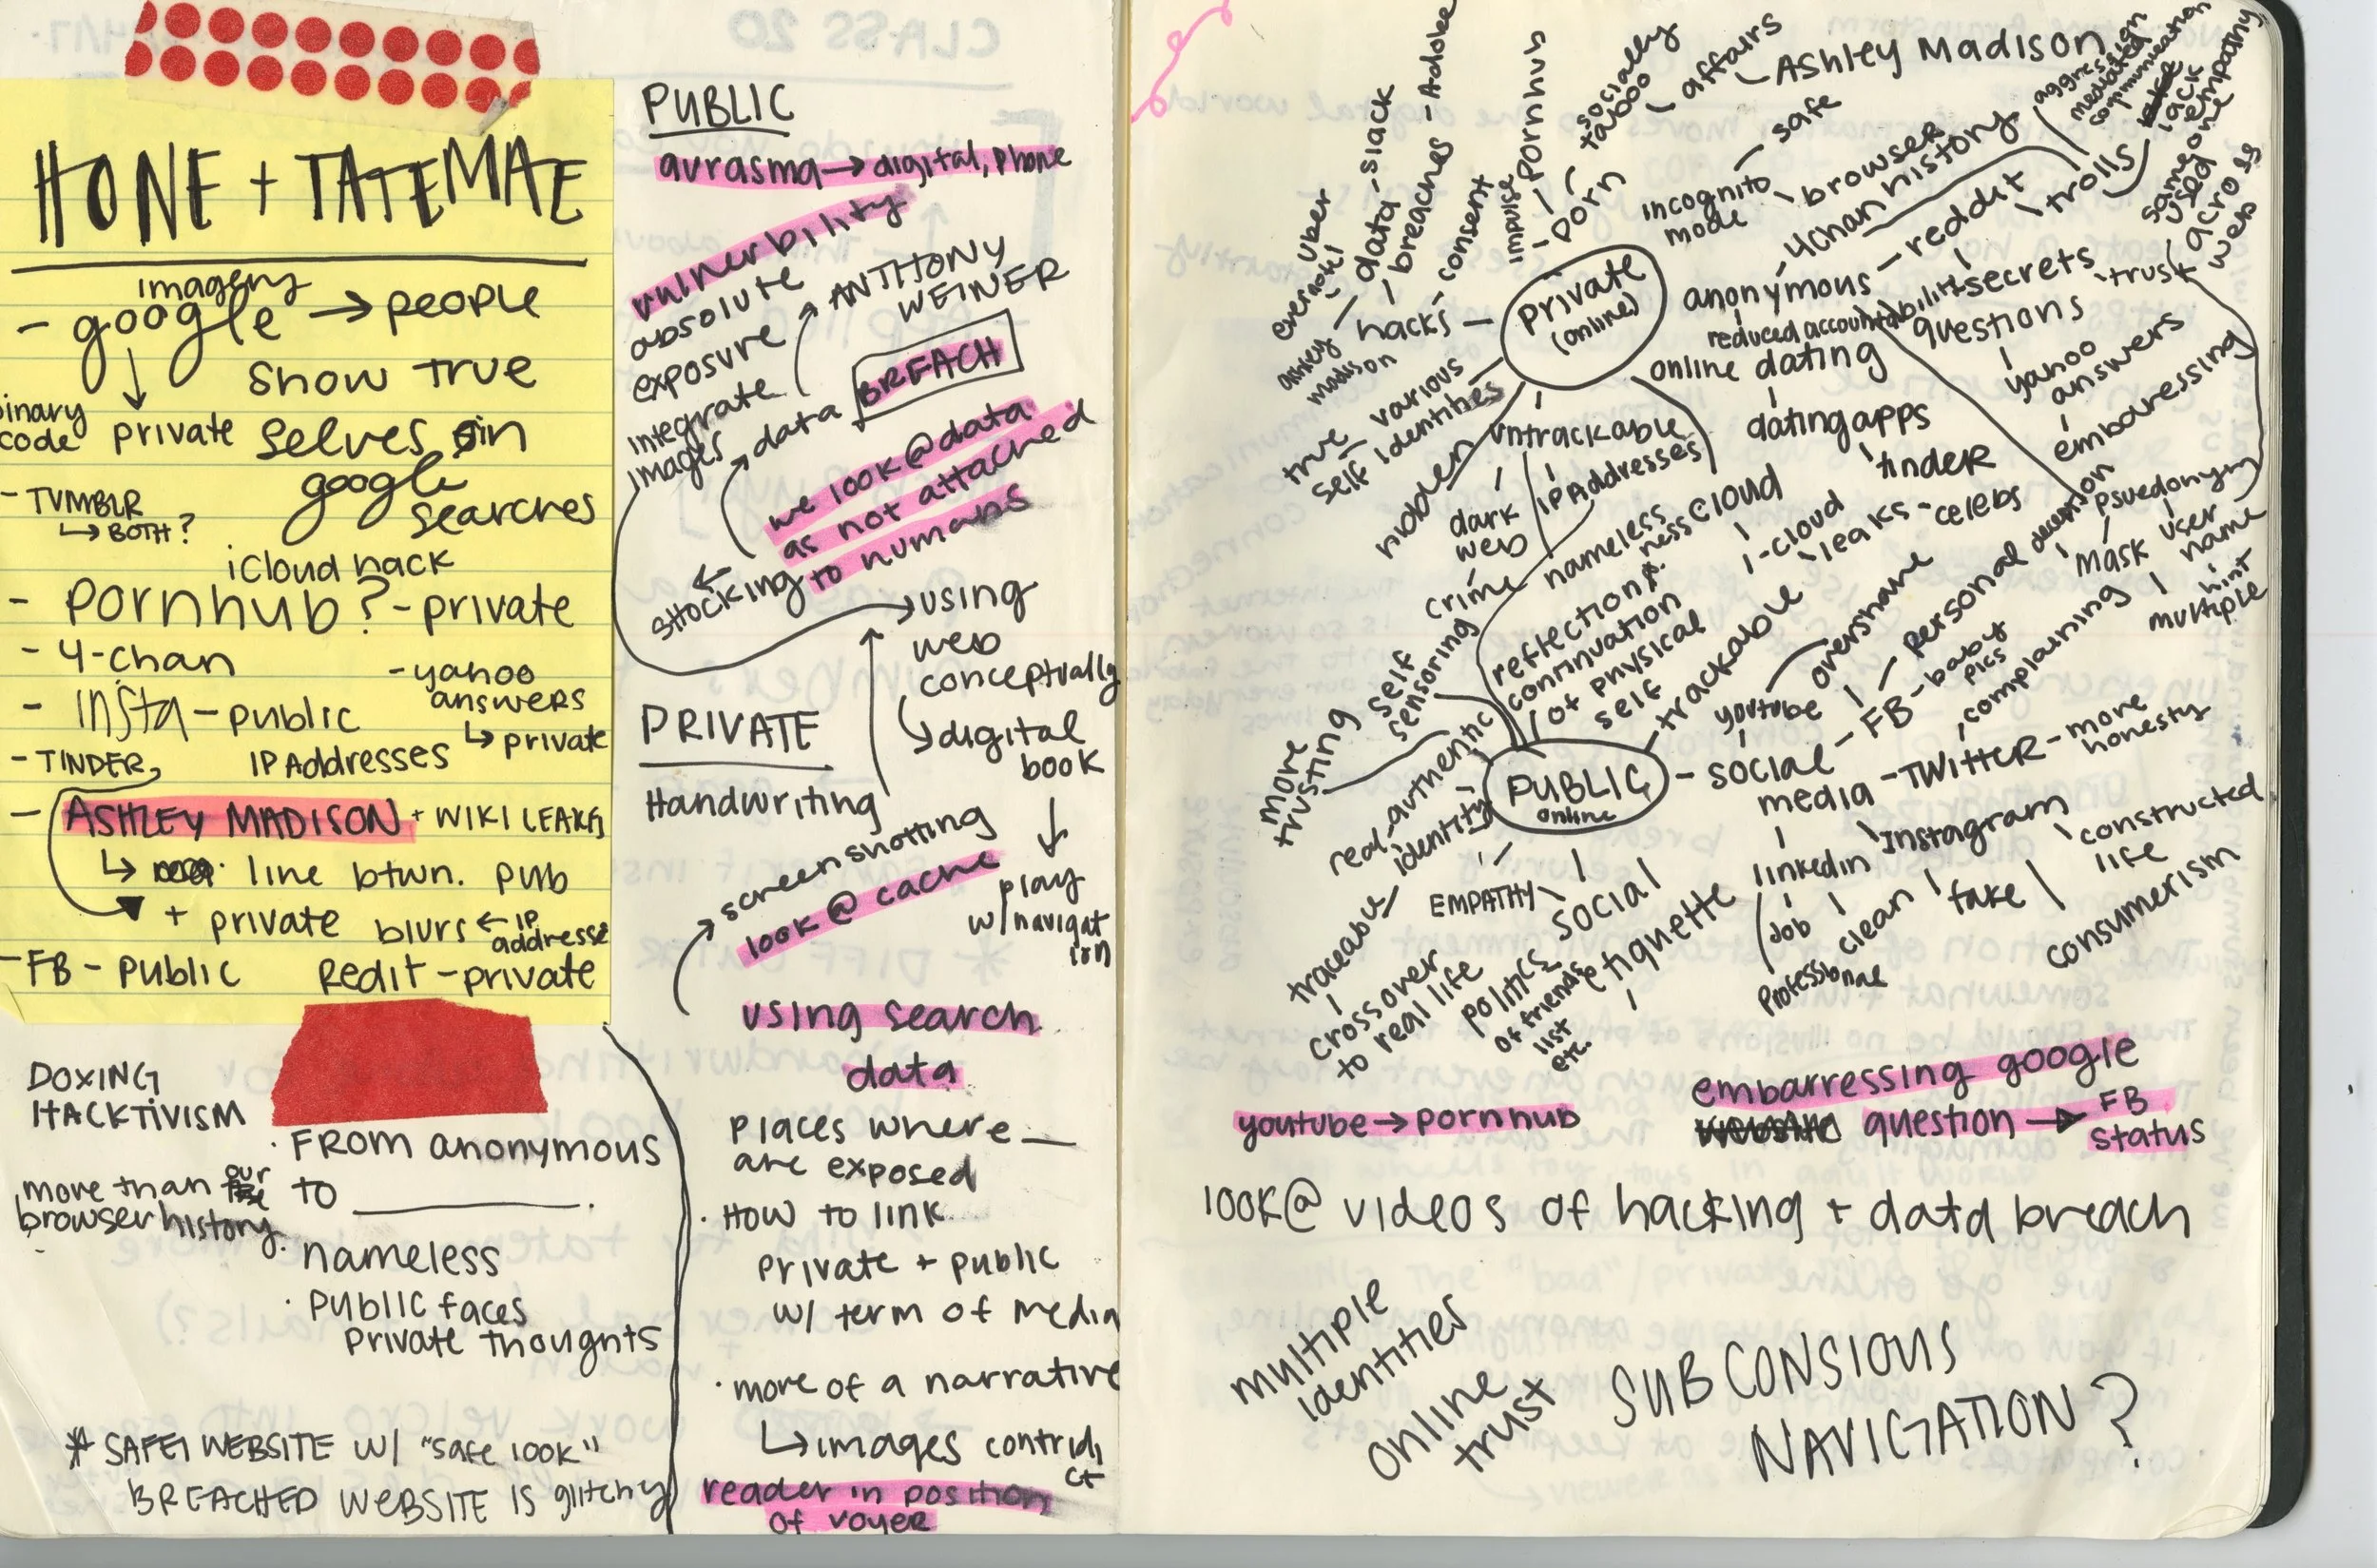 HONE + TATEMAE
imagery
- google → people
show true
binary code
private selves in
google searches
- TUMBLR
↳ BOTH?
iCloud hack
- Pornhub? - private
- 4-chan
- yahoo answers
↳ private
- insta - public
- TINDER
IP Addresses
- ASHLEY MADISON + WIKILEAKS
↳ line btwn. pub
+ private blurs ← IP addresse
- FB - public
Redit - private
DOXING
HACKTIVISM
more than our
browser history.
· FROM anonymous
to ________.
nameless
· public faces
private thoughts
* SAFE WEBSITE W/ "safe look"
BREACHED WEBSITE IS glitchy
PUBLIC
aurasma → digital, phone
vulnerbility
absolute
exposure
integrate
images
ANTHONY
WEINER
data BREACH
we look @ data
as not attached
to humans
shocking
→ using
web
conceptually
↳ digital
book
↓
play
w/ navigat
ion
PRIVATE
Handwriting
screenshotting
look @ cache
using search
data
places where __
are exposed
· HOW TO link
private + public
w/ term of media
· more of a narrative
↳ images contridi
ct
reader in position
of voyer
private
(online)
hacks
ashley
madison
data
breaches - Adobe
slack
uber
evernote
consent
impulse
porn
Pornhub
socially
taboo
affairs
Ashley Madison
incognito
mode
safe
browser
history
anonymous
4chan
reddit
trolls
aggression
mediated
communication
lack
empathy
reduced accountability
secrets
questions
yahoo
answers
embaressing
trust
same one
used
across
web
online dating
dating apps
tinder
various
self identities
true
self
hidden
untrackable
IP Addresses
dark
web
crime
nameless
ness
cloud
i-cloud
leaks - celebs
psuedonym
mask
user
name
hint
multiple
deception
PUBLIC
online
self
censoring
more
trusting
reflection /
continuation
of physical
self
trackable
real-authentic
identity
traceable
crossover
to real life
EMPATHY
social
etiquette
politics
of friends
list
etc.
social
media
youtube
overshare
personal
FB - baby
pics
complaining
TWITTER - more
honesty
Instagram
constructed
life
fake
clean
linkedin
Job
Professional
consumerism
youtube → pornhub
embarressing google
question → FB
status
look @ videos of hacking + data breach
multiple
identities
online
trust
SUBCONSIOUS
NAVIGATION?